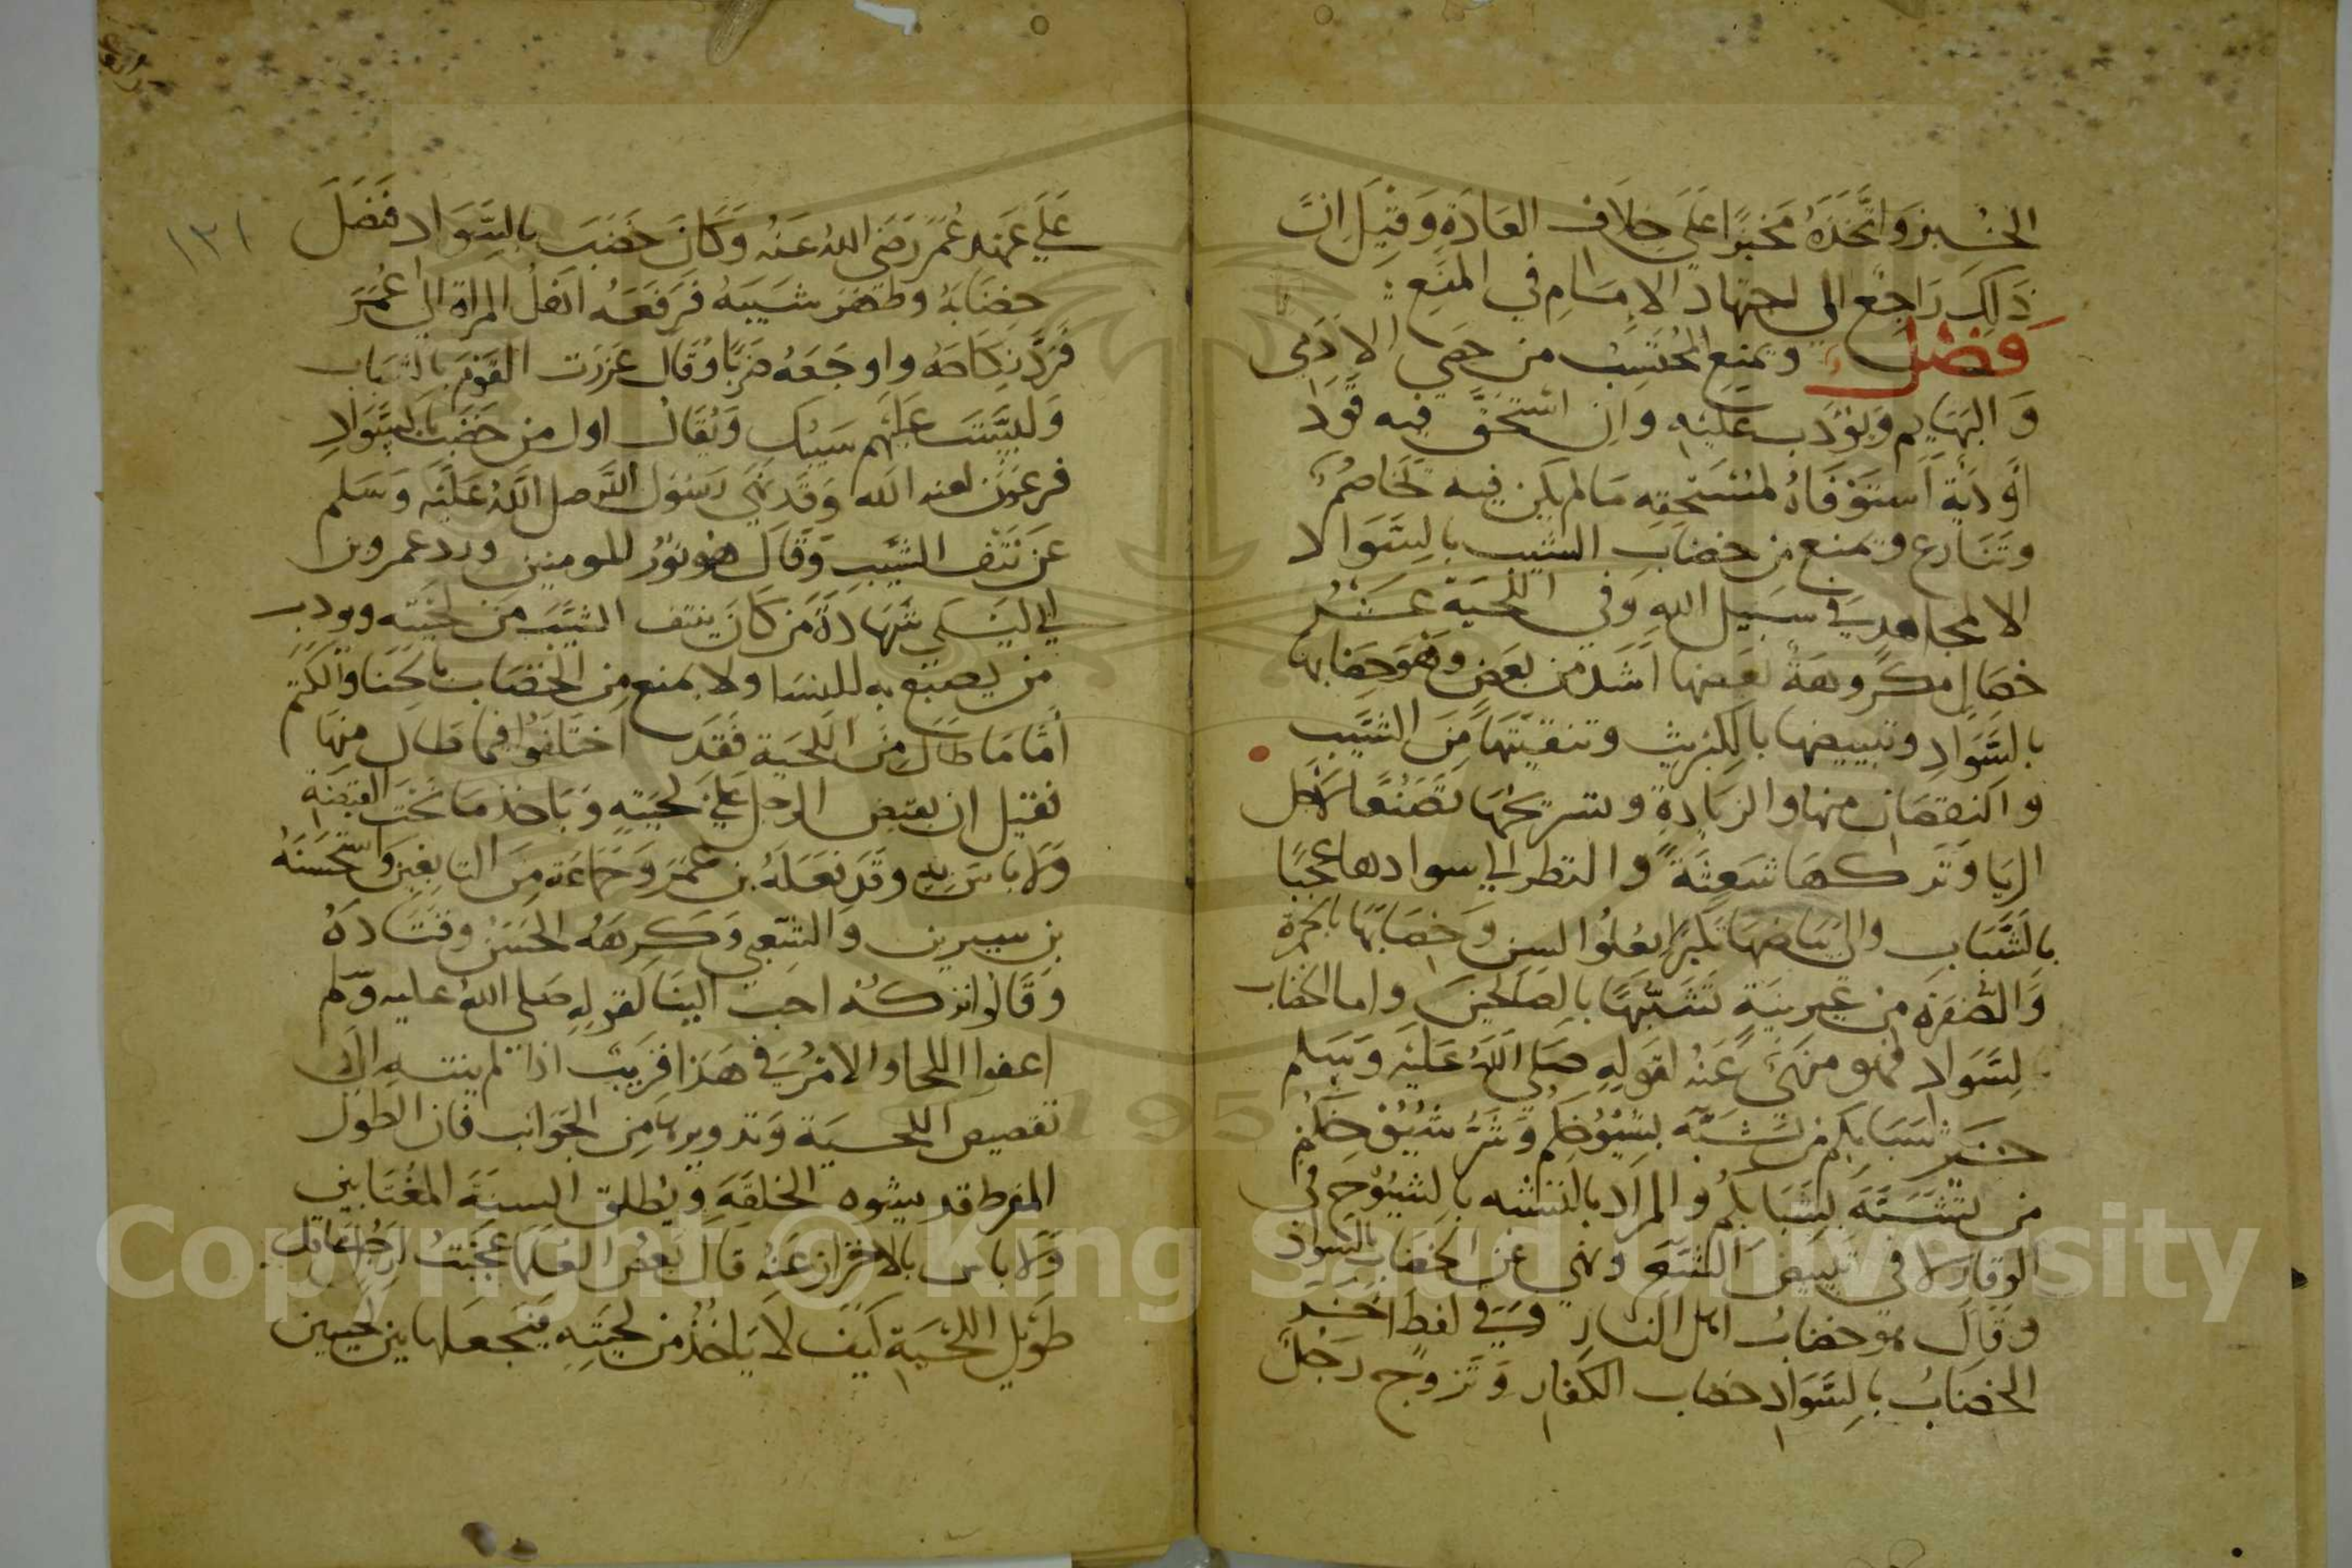 الخبز واتخذه مخبزا على خلاف العادة وقيل ان
ذلك راجع الي اجتهاد الامام في المنع
فصل ويمنع المحتسب من خصي الادمي
والبهايم ويؤدب عليه وان استحق فيه قودا
او دية استوفاه لمستحقه مالم يكن فيه تخاصم
وتنازع ويمنع من خضاب الشيب بالسوا لا
الا لمجاهد في سبيل الله وفي اللحية عشر
خصال مكروهة بعضها اشد من بعض وهو خضابها
بالسواد وتبييضها بالكبريت وتنقيتها من الشيب
والنقصان منها والزيادة وتسريحها تصنعا لاجل
الريا وتركها شعثة والنظر الي سوادها عجبا
بالشباب والي بياضها تكبرا بعلو السن وخضابها بالحمرة
والصفرة من غير نية تشبها بالصالحين واما الخضاب
لسواد فهو منهي عنه لقوله صلي الله عليه وسلم
خير شبابكم من تشبه بشيوخكم وشر شيوخكم
من تشبه بشبابكم والمراد بالتشبه بالشيوخ في
الوقار لا في تبييض الشعر ونهي عن الخضاب بالسواد
وقال هو خضاب اهل النار وفي لفظ اخر
الخضاب بالسواد خضاب الكفار وتزوج رجل
١٣١
علي عهد عمر رضي الله عنه وكان خضب بالسواد فنصل
خضابه وظهر شيبه فرفعه اهل المراة الي عمر
فرد نكاحه واوجعه ضربا وقال غررت القوم بالشباب
ولبست عليهم شيبك ويقال اول من خضب بالسواد
فرعون لعنه الله وقد نهي رسول الله صلي الله عليه وسلم
عن نتف الشيب وقال هو نور للمومنين ورد عمر وبن
ابي ليلي شهادة من كان ينتف الشيب من لحيته ويودب
من يصنع به للنسا ولا يمنع من الخضاب بالحنا والكتم
اما ما طال من اللحية فقد اختلفوا فيما طال منها
فقيل ان يقبض الرجل علي لحيته وياخذ ما تحت القبضة
ولا باس به وقد فعله بن عمر وجماعة من التابعين واستحسنه
بن سيرين والشعبي وكرهه الحسن وقتادة
وقالوا نتركه احب الينا لقوله صلي الله عليه وسلم
اعفوا اللحا والامر في هذا قريب اذا لم ينته الي
تقصيص اللحية وتدويرها من الجوانب فان الطول
المفرط قد يشوه الخلقة ويطلق السنة المغتابين
ولا باس بالاحتراز عنه قال بعض العلما عجبت لرجل عاقل
طويل اللحية كيف لا ياخذ من لحيته فيجعلها بين لحيتين
Copyright © King Saud University